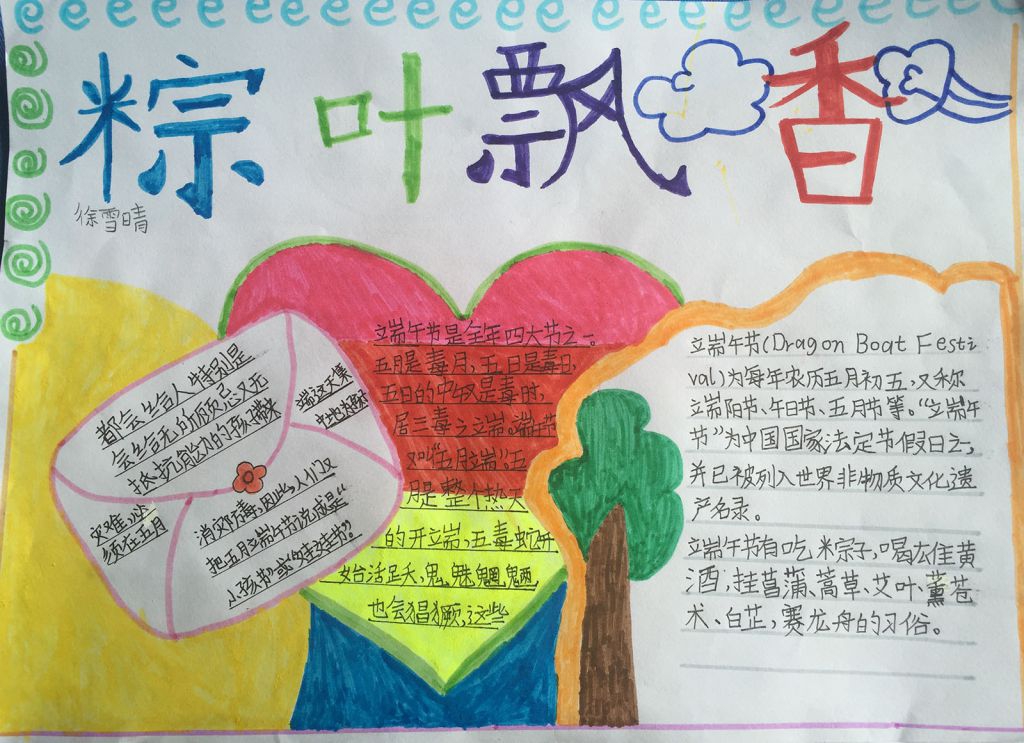 粽叶飘香
徐雪晴
立端午节是全年四大节之一。
五月是毒月,五日是毒日,
五日的中午又是毒时,
居三毒之立端。端午节
又叫“五月立端”五
月是整个热天
的开立端,五毒蛇虫开
始活跃,鬼魅魍魉,
也会猖獗,这些
都会给人特别是
会给无的顽忌又无
抵抗能力的孩子带来
灾难,必
须在五月
端这天集
中地加强
消灾防毒,因此,人们又
把五月立端午节说成是“
小孩节”或“娃娃节”。
立端午节(Dragon Boat Festi
val)为每年农历五月初五,又称
立端阳节、午日节、五月节等。“立端午
节”为中国国家法定节假日之一,
并已被列入世界非物质文化遗
产名录。
立端午节有吃粽子,喝雄黄
酒,挂菖蒲、蒿草、艾叶,薰苍
术、白芷,赛龙舟的习俗。